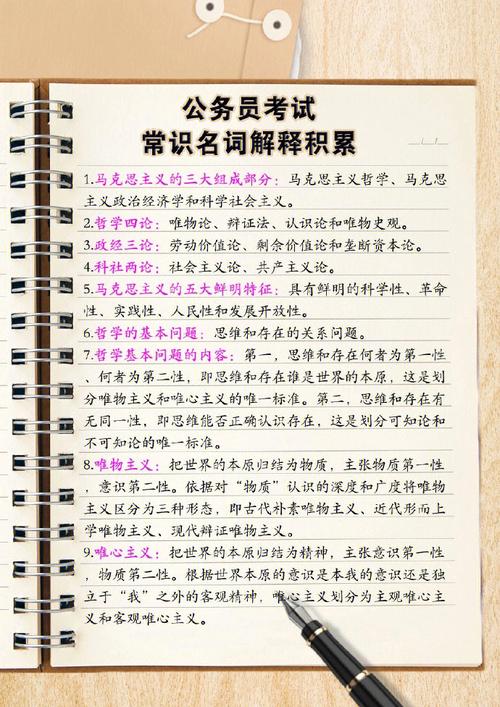 公务员考试
常识名词解释积累
1.马克思主义的三大组成部分：马克思主义哲学、马克思
主义政治经济学和科学社会主义。
2.哲学四论：唯物论、辩证法、认识论和唯物史观。
3.政经三论：劳动价值论、剩余价值论和垄断资本论。
4.科社两论：社会主义论、共产主义论。
5.马克思主义的五大鲜明特征：具有鲜明的科学性、革命
性、实践性、人民性和发展开放性。
6.哲学的基本问题：思维和存在的关系问题。
7.哲学基本问题的内容：第一，思维和存在何者为第一性
、何者为第二性，即思维和存在谁是世界的本原，这是划
分唯物主义和唯心主义的唯一标准。第二，思维和存在有
无同一性，即思维能否正确认识存在，这是划分可知论和
不可知论的唯一标准。
8.唯物主义：把世界的本原归结为物质，主张物质第一性
，意识第二性。依据对“物质”认识的深度和广度将唯物
主义区分为三种形态，即古代朴素唯物主义、近代形而上
学唯物主义、现代辩证唯物主义。
9.唯心主义：把世界的本原归结为精神，主张意识第一性
，物质第二性。根据世界本原的意识是本我的意识还是独
立于“我”之外的客观精神，唯心主义划分为主观唯心主
义和客观唯心主义。